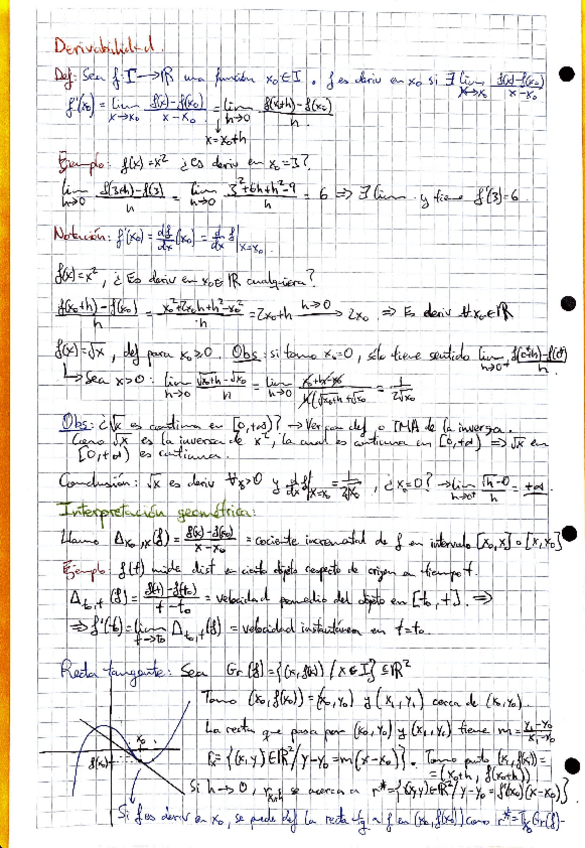 Derivabilidad.
Def: Sea f: I → ℝ una función x₀ ∈ I. f es deriv en x₀ si ∃ lim_{x→x₀} (f(x)-f(x₀))/(x-x₀)
f'(x₀) = lim_{x→x₀} (f(x)-f(x₀))/(x-x₀) = lim_{h→0} (f(x₀+h)-f(x₀))/h.
x = x₀+h
Ejemplo: f(x) = x² ¿Es deriv en x₀ = 3?
lim_{h→0} (f(3+h)-f(3))/h = lim_{h→0} (3²+6h+h²-9)/h = 6 ⇒ ∃ lim y tiene f'(3)=6.
Notación: f'(x₀) = df/dx (x₀) = d/dx f|_{x=x₀}.
f(x) = x², ¿Es deriv en x₀ ∈ ℝ cualquiera?
(f(x₀+h)-f(x₀))/h = (x₀²+2x₀h+h²-x₀²)/h = 2x₀+h →^{h→0} 2x₀ ⇒ Es deriv ∀x₀∈ℝ
f(x) = √x, def para x₀ ≥ 0. Obs: si tomo x₀=0, sólo tiene sentido lim_{h→0⁺} (f(0+h)-f(0))/h
↳ Sea x>0: lim_{h→0} (√(x₀+h)-√x₀)/h = lim_{h→0} (x₀+h-x₀)/(h(√(x₀+h)+√x₀)) = 1/(2√x₀)
Obs: ¿√x es continua en [0,+∞)? → Ver por def o TMA de la inversa.
Como √x es la inversa de x², la cual es continua en [0,+∞) ⇒ √x en
[0,+∞) es continua.
Conclusión: √x es deriv ∀x₀>0 y d/dx f|_{x=x₀} = 1/(2√x₀), ¿x₀=0? → lim_{h→0⁺} (√h-0)/h = +∞.
Interpretación geométrica:
Llamo Δ_{x₀,x}(f) = (f(x)-f(x₀))/(x-x₀) = cociente incremental de f en intervalo [x₀,x] o [x,x₀]
Ejemplo: f(t) mide dist en cierto objeto respecto de origen en tiempo t.
Δ_{t₀,t}(f) = (f(t)-f(t₀))/(t-t₀) = velocidad promedio del objeto en [t₀,t]. ⇒
⇒ f'(t₀) = lim_{t→t₀} Δ_{t₀,t}(f) = velocidad instantánea en t=t₀.
Recta tangente: Sea Gr(f) = {(x,f(x)) / x∈I} ⊆ ℝ²
Tomo (x₀,f(x₀)) = (x₀,y₀) y (x₁,y₁) cerca de (x₀,y₀).
La recta que pasa por (x₀,y₀) y (x₁,y₁) tiene m = (y₁-y₀)/(x₁-x₀)
R = {(x,y)∈ℝ² / y-y₀ = m(x-x₀)}. Tomo punto (x₁,f(x₁)) =
= (x₀+h, f(x₀+h))
x₀
f(x₀)
Si h→0, r_{x₀+h} se acerca a r* = {(x,y)∈ℝ² / y-y₀ = f'(x₀)(x-x₀)}
Si f es deriv en x₀, se puede def la recta tg a f en (x₀,f(x₀)) como r* = T_{x₀}Gr(f)